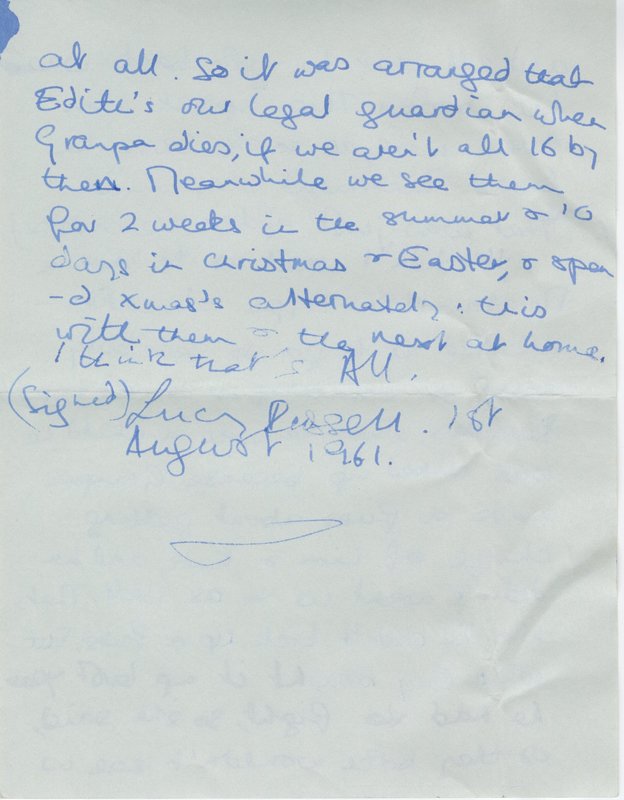 at all. So it was arranged that
Edith's our legal guardian when
Granpa dies, if we aren't all 16 by
then. Meanwhile we see them
for 2 weeks in the summer & 10
days in christmas & Easter, & spen
-d xmas's alternately: this
with them & the next at home.
I think that's All.
(Signed) Lucy Russell. 1st
August 1961.